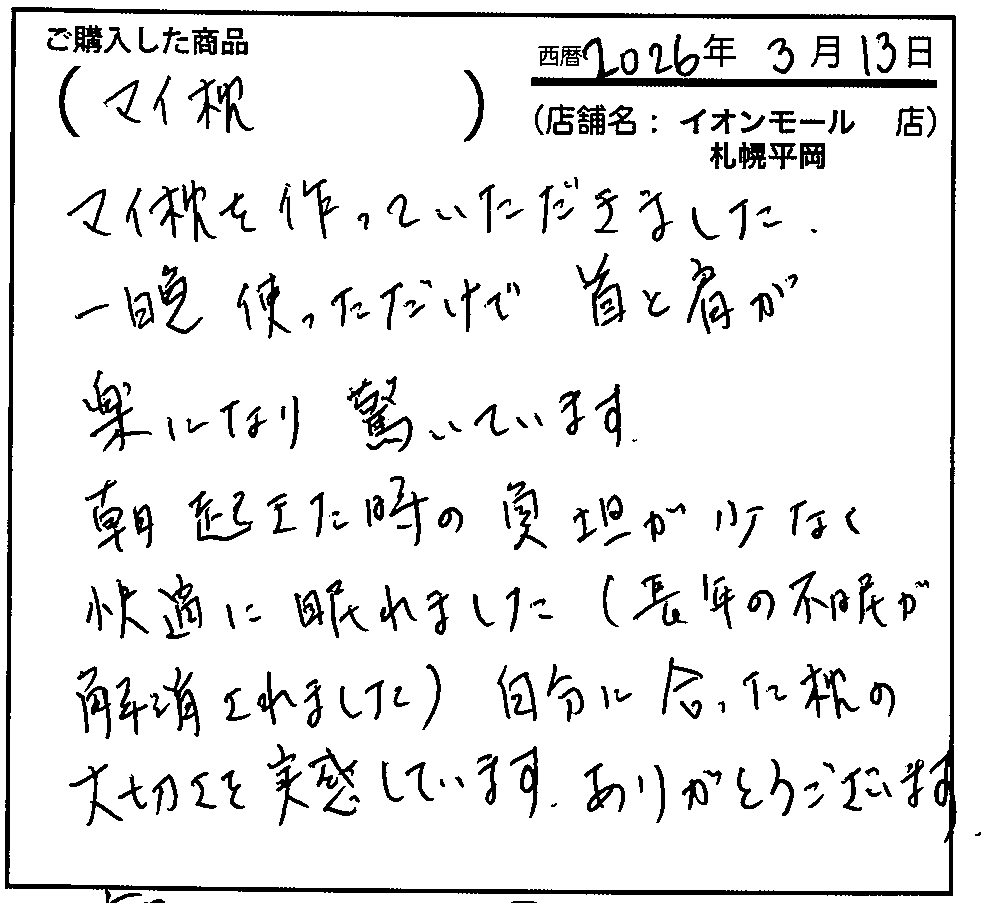 ご購入した商品
西暦2026年 3月13日
(マイ枕)
(店舗名：イオンモール 店)
札幌平岡
マイ枕を作っていただきました.
一晩使っただけで首と肩が
楽になり驚いています.
朝起きた時の負担が少なく
快適に眠れました(長年の不眠が
解消されました)自分に合った枕の
大切さを実感しています.ありがとうございます.